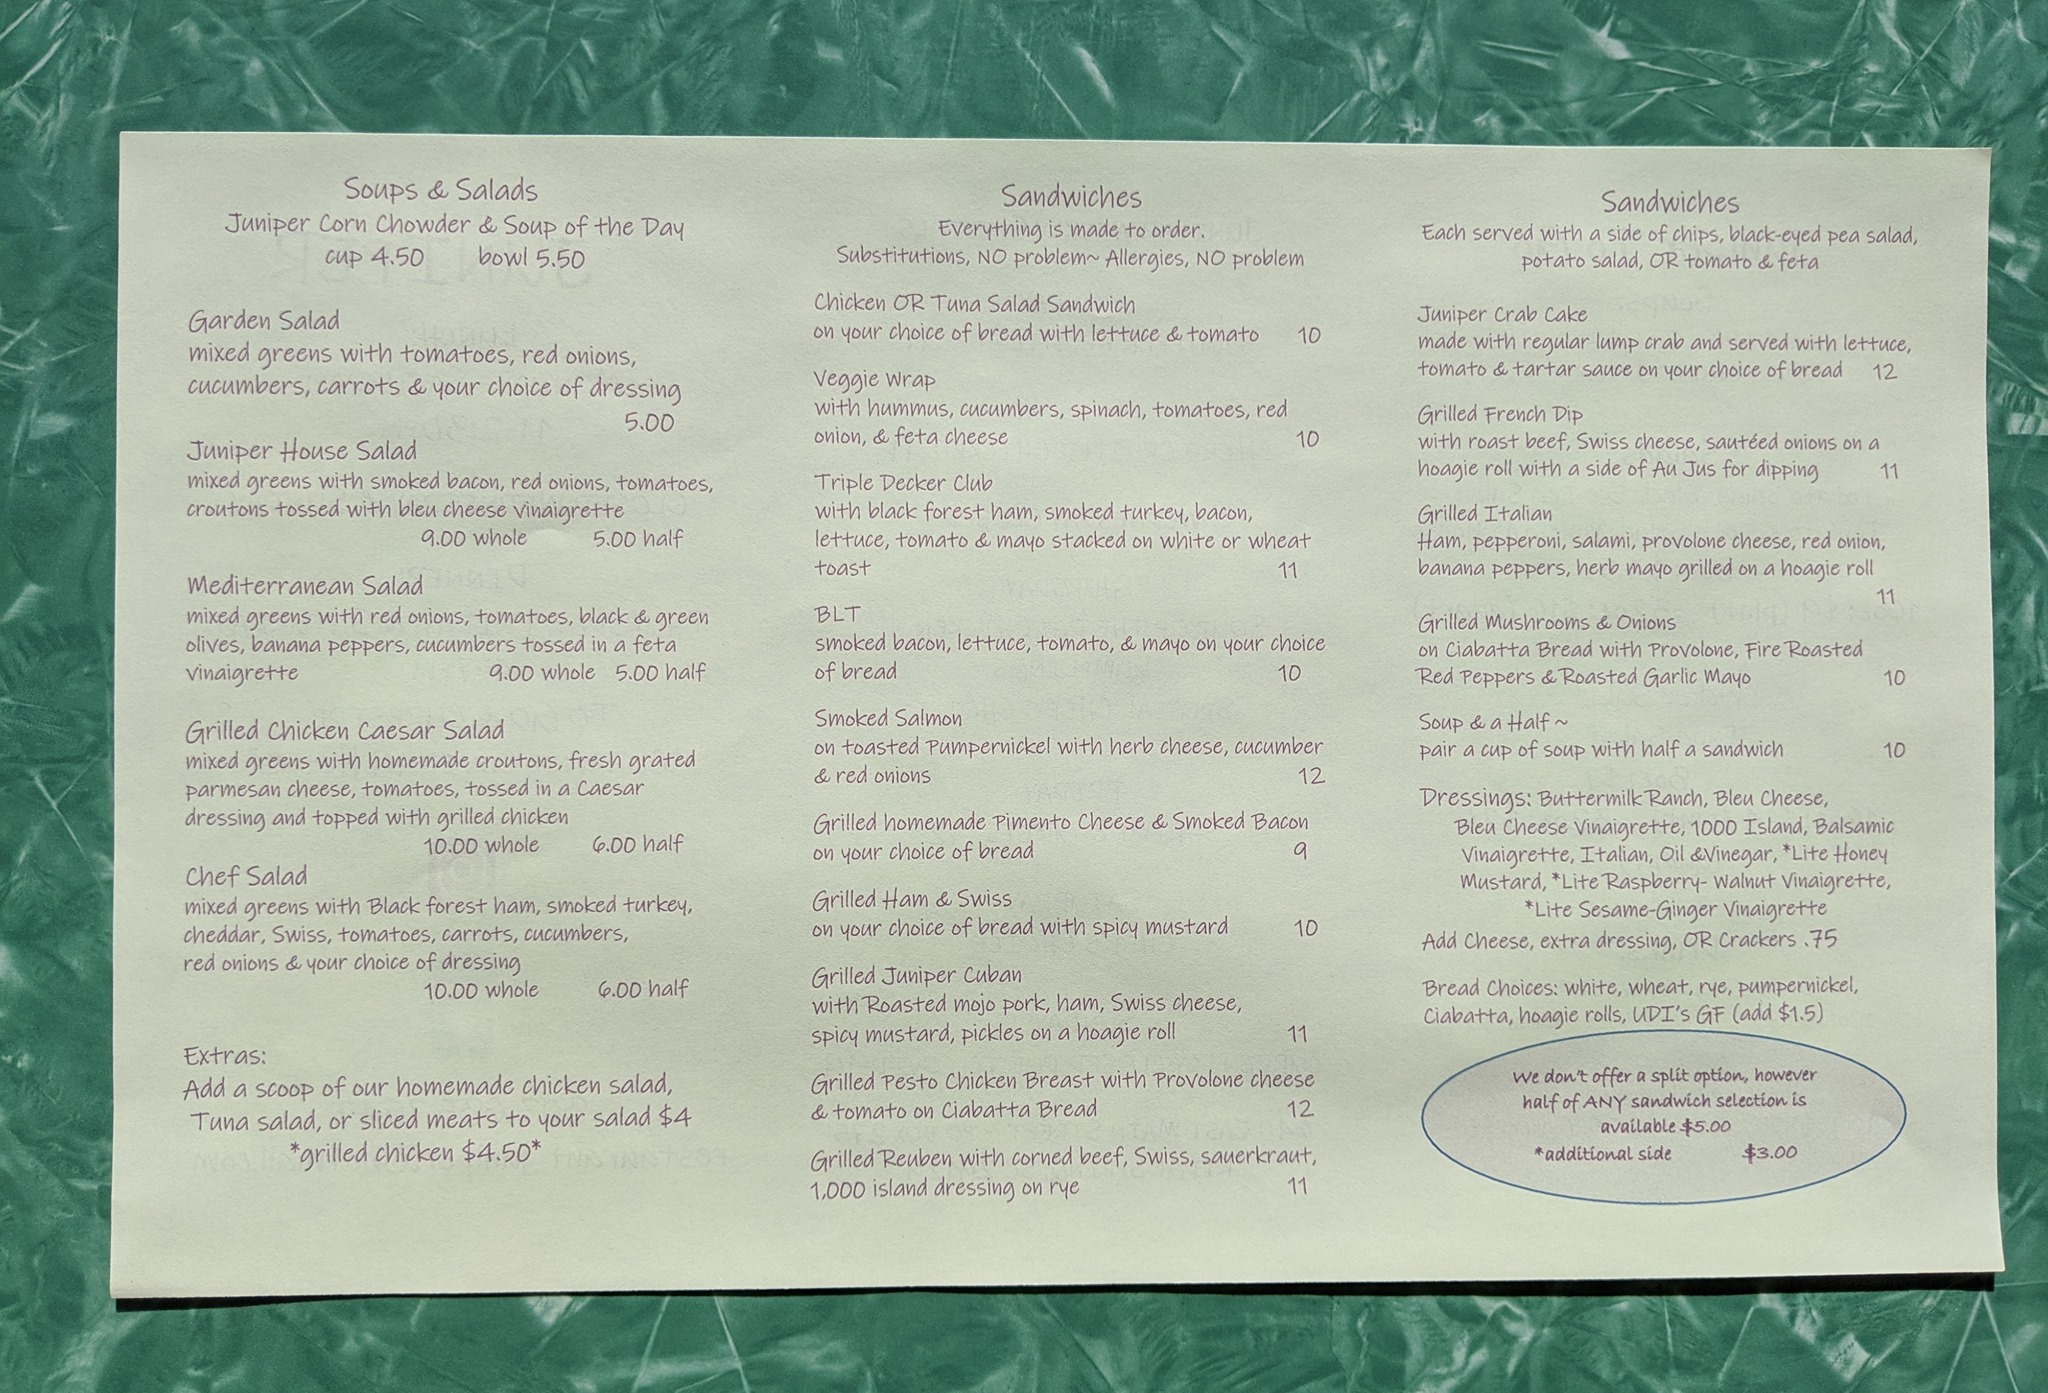 Soups & Salads
Juniper Corn Chowder & Soup of the Day
cup 4.50 bowl 5.50
Garden Salad
mixed greens with tomatoes, red onions,
cucumbers, carrots & your choice of dressing
5.00
Juniper House Salad
mixed greens with smoked bacon, red onions, tomatoes,
croutons tossed with bleu cheese vinaigrette
9.00 whole 5.00 half
Mediterranean Salad
mixed greens with red onions, tomatoes, black & green
olives, banana peppers, cucumbers tossed in a feta
vinaigrette 9.00 whole 5.00 half
Grilled Chicken Caesar Salad
mixed greens with homemade croutons, fresh grated
parmesan cheese, tomatoes, tossed in a Caesar
dressing and topped with grilled chicken
10.00 whole 6.00 half
Chef Salad
mixed greens with Black forest ham, smoked turkey,
cheddar, Swiss, tomatoes, carrots, cucumbers,
red onions & your choice of dressing
10.00 whole 6.00 half
Extras:
Add a scoop of our homemade chicken salad,
Tuna salad, or sliced meats to your salad $4
*grilled chicken $4.50*
Sandwiches
Everything is made to order.
Substitutions, NO problem~ Allergies, NO problem
Chicken OR Tuna Salad Sandwich
on your choice of bread with lettuce & tomato 10
Veggie Wrap
with hummus, cucumbers, spinach, tomatoes, red
onion, & feta cheese 10
Triple Decker Club
with black forest ham, smoked turkey, bacon,
lettuce, tomato & mayo stacked on white or wheat
toast 11
BLT
smoked bacon, lettuce, tomato, & mayo on your choice
of bread 10
Smoked Salmon
on toasted Pumpernickel with herb cheese, cucumber
& red onions 12
Grilled homemade Pimento Cheese & Smoked Bacon
on your choice of bread 9
Grilled Ham & Swiss
on your choice of bread with spicy mustard 10
Grilled Juniper Cuban
with Roasted mojo pork, ham, Swiss cheese,
spicy mustard, pickles on a hoagie roll 11
Grilled Pesto Chicken Breast with Provolone cheese
& tomato on Ciabatta Bread 12
Grilled Reuben with corned beef, Swiss, sauerkraut,
1,000 island dressing on rye 11
Sandwiches
Each served with a side of chips, black-eyed pea salad,
potato salad, OR tomato & feta
Juniper Crab Cake
made with regular lump crab and served with lettuce,
tomato & tartar sauce on your choice of bread 12
Grilled French Dip
with roast beef, Swiss cheese, sautéed onions on a
hoagie roll with a side of Au Jus for dipping 11
Grilled Italian
Ham, pepperoni, salami, provolone cheese, red onion,
banana peppers, herb mayo grilled on a hoagie roll
11
Grilled Mushrooms & Onions
on Ciabatta Bread with Provolone, Fire Roasted
Red Peppers & Roasted Garlic Mayo 10
Soup & a Half ~
pair a cup of soup with half a sandwich 10
Dressings: Buttermilk Ranch, Bleu Cheese,
Bleu Cheese Vinaigrette, 1000 Island, Balsamic
Vinaigrette, Italian, Oil &Vinegar, *Lite Honey
Mustard, *Lite Raspberry- Walnut Vinaigrette,
*Lite Sesame-Ginger Vinaigrette
Add Cheese, extra dressing, OR Crackers .75
Bread Choices: white, wheat, rye, pumpernickel,
Ciabatta, hoagie rolls, UDI's GF (add $1.5)
We don't offer a split option, however
half of ANY sandwich selection is
available $5.00
*additional side $3.00